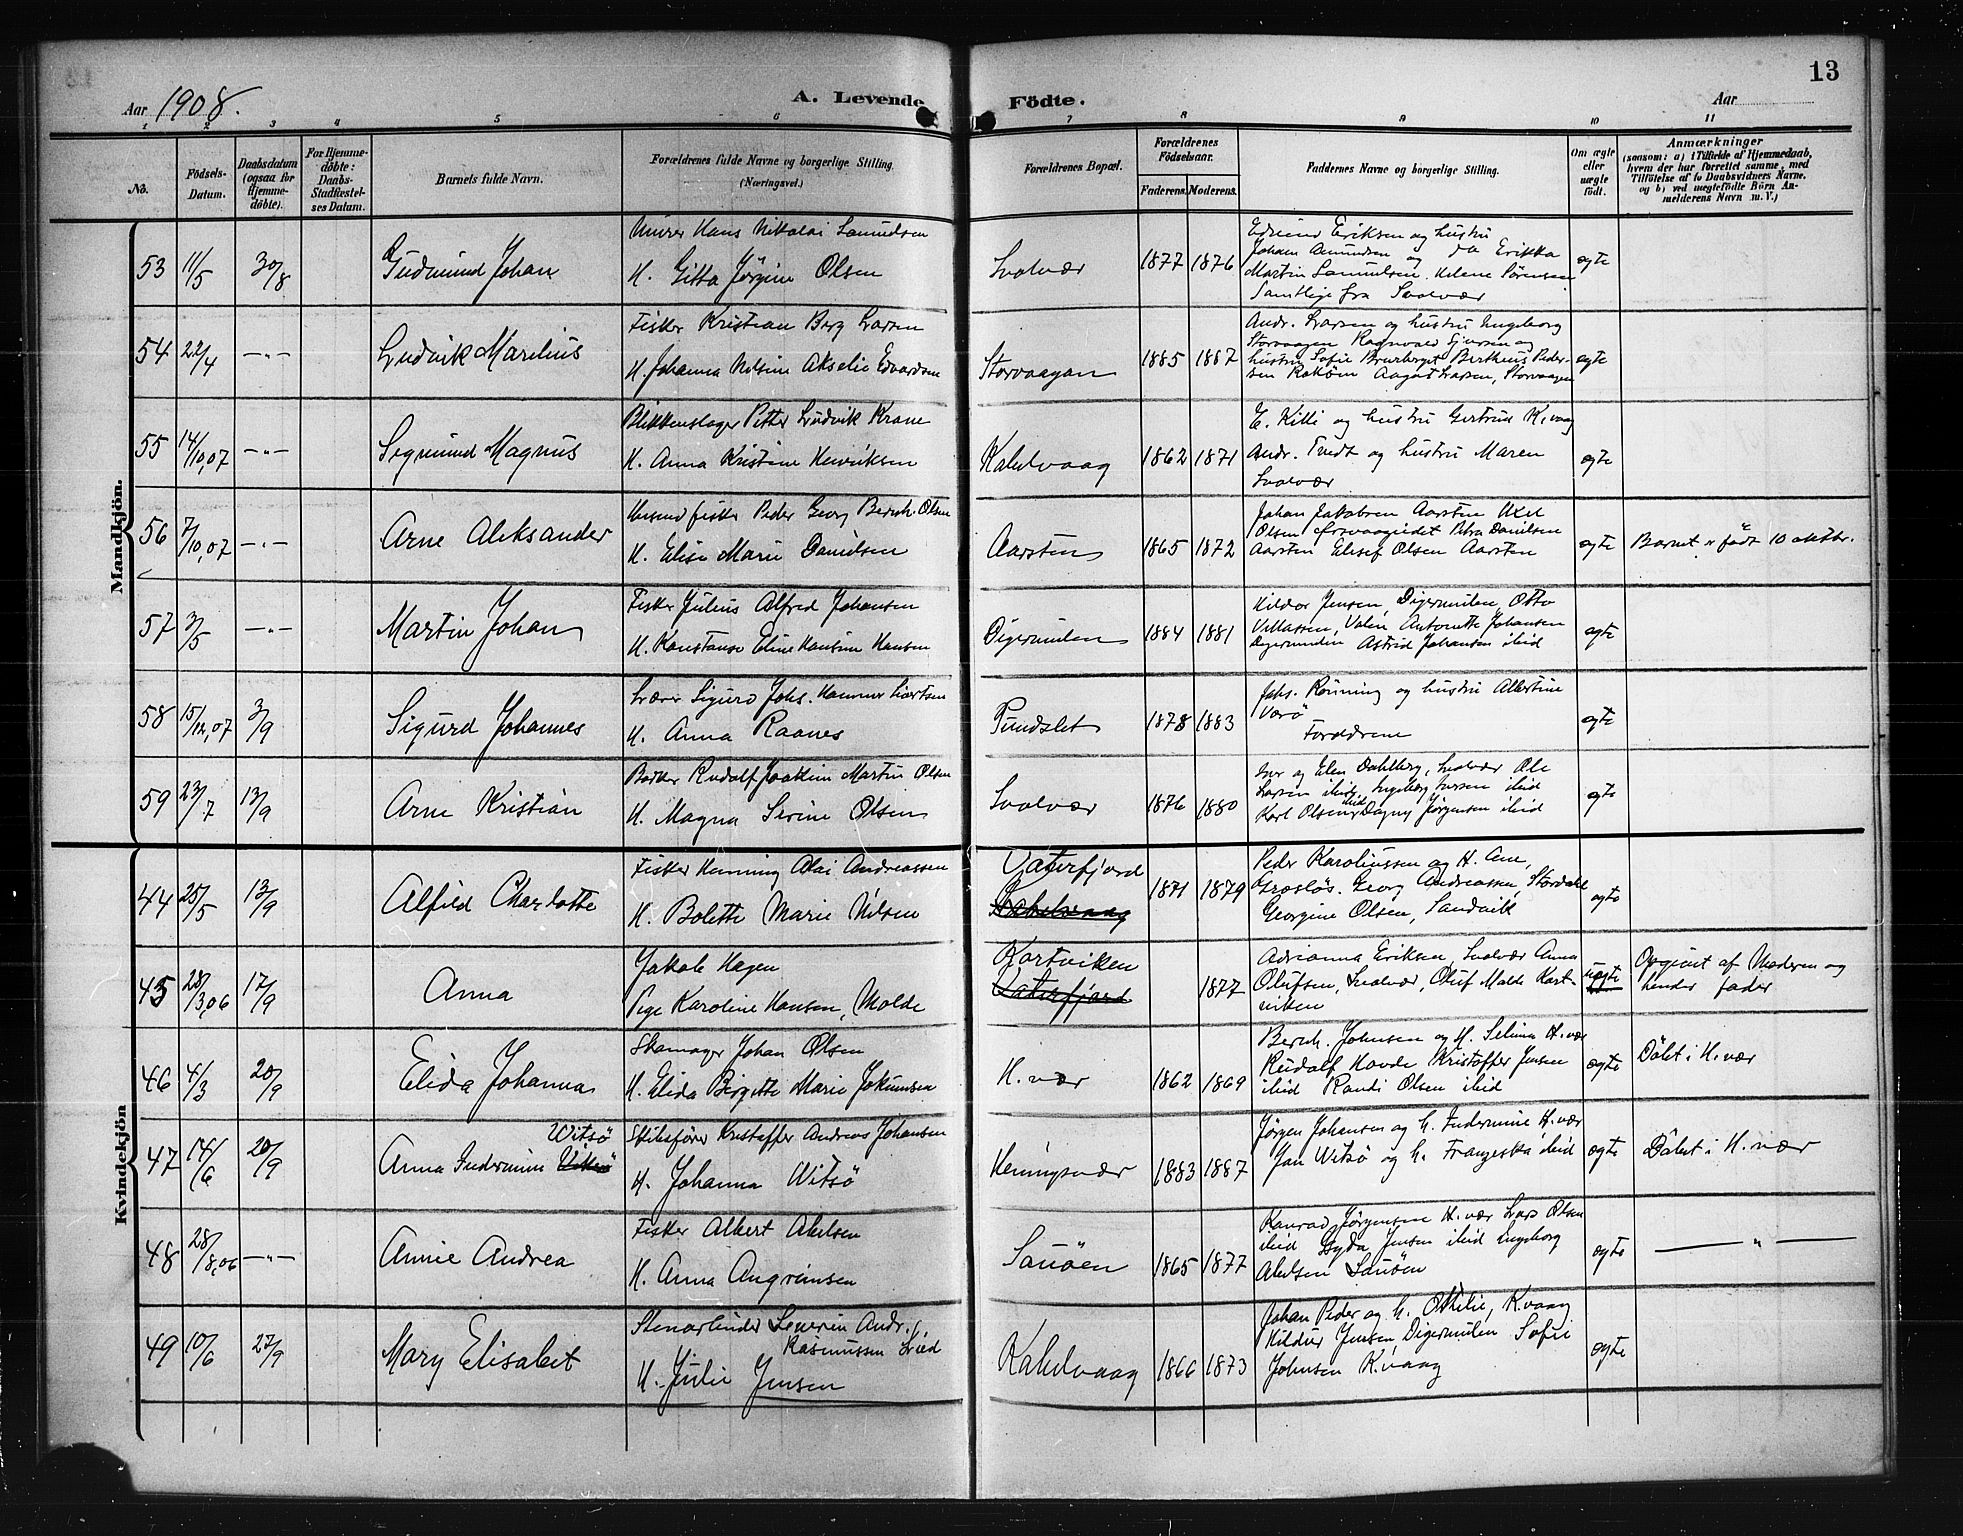 13
Aar 1908.
A. Levende Födte.
Aar
1 2 3 4 5 6 7 8 9 10 11
No.
Födsels-Datum.
Daabsdatum (ogsaa for Hjemme-döbte).
For Hjemme-döbte: Daabs-Stadfæstel-ses Datum.
Barnets fulde Navn.
Forældrenes fulde Navne og borgerlige Stilling.
(Næringsvei.)
Forældrenes Bopæl.
Forældrenes Födselsaar.
Faderens. Moderens.
Faddernes Navne og borgerlige Stilling.
Om ægte eller uægte födt.
Anmærkninger
(saasom: a) i Tilfælde af Hjemmedaab, hvem der har forrettet samme, med Tilföielse af to Daabsvidners Navne, og b) ved uægtefödte Börn An-melderens Navn m. V.)
Mandkjön.
53 11/5 30/8 Gudmund Johan
Murer Hans Nikolai Samuelsen
H. Gitta Jörgine Olsen
Svolvær 1877 1876
Edvind Eriksen og hustru
Johan Amundsen og da Erikka
Martin Samuelsen, Helene Sørensen
Samtlige fra Svolvær
ægte
54 22/4 —"— Ludvik Marelius
Fisker Kristian Berg Larsen
H. Johanna Nilsine Akselie Edvardsen
Storvaagan 1885 1887
Andr. Larsen og hustru Ingeborg
Storvaagen Ragnvald Sjursen og
hustru Sofie Brurberget Bertheus Peder-
sen Rakøen August Larsen, Storvaagen
ægte
55 14/10,07 —"— Sigmund Magnus
Blikkenslager Petter Ludvik Krane
H. Anna Kristine Henriksen
Kabelvaag 1862 1871
E. Killi og hustru Gertrud K.vaag
Andr. Tvedt og hustru Maren
Svolvær
ægte
56 7/10,07 —"— Arne Aleksander
Husmd fisker Peder Georg Bernh. Olsen
H. Elise Marie Danielsen
Aarsten 1865 1872
Johan Jakobsen Aarsten Axel
Olsen Ørsvaagvedet Petra Danielsen
Aarsten Elisef Olsen Aarsten
ægte
Barnet er født 10 oktbr.
57 3/5 —"— Martin Johan
Fisker Julius Alfred Johansen
H. Konstanse Eline Hansine Hansen
Digermulen 1884 1881
Hildor Jensen, Digermulen Otto
Villassen, Valen Antonette Johansen
Digermulen Astrid Johansen ibid
ægte
58 15/12,07 3/9 Sigurd Johannes
Lærer Sigurd Johs. Hammer Sivertsen
H. Anna Raanes
Pundslet 1878 1883
Johs. Rønning og hustru Albertine
Varö
Forældrene
ægte
59 23/7 13/9 Arne Kristian
Bødker Rudolf Joakim Martin Olsen
H. Magna Serine Olsen
Svolvær 1876 1880
Iver og Elen Dahlberg, Svolvær Ole
Larsen ibid, Ingeborg Iversen ibid
Karl Olsen ibid Dagny Jørgensen ibid
ægte
Kvindekjön
44 25/5 13/9 Alfild Charlotte
Fisker Henning Olai Andreassen
H. Bolette Marie Nilsen
Vaterfjord
Kabelvaag
1871 1879
Peder Karoliussen og H. Ane,
Grosløs. Georg Andreassen, Stordahl
Georgine Olsen, Sandvik
ægte
45 28/3,06 17/9 Anna
Jakob Hagen
Pige Karoline Hansen, Molde
Kartviken
Vaterfjord
1877
Adrianna Eriksen, Svolvær Anna
Olufsen, Svolvær, Oluf Molde Kart-
viken
uægte
Opgivet af Moderen og
hendes fader
46 4/3 20/9 Elida Johanna
Skomager Johan Olsen
H. Elida Birgitte Marie Jokumsen
H.vær 1862 1869
Bernh. Johnsen og H. Selima H.vær
Rudolf Hovde Kristoffer Jensen
ibid Randi Olsen ibid
ægte
Döbt i H.vær
47 14/6 20/9 Anna Indermine Witsö
Skibsfører Kristoffer Andreas Johansen
H. Johanna Witsö
Heningsvær 1883 1887
Jørgen Johansen og H. Indermine H.vær
Jan Witsö og H. Franzeska ibid
ægte
Döbt i H.vær
48 28/8,06 —"— Annie Andrea
Fisker Albert Abelsen
H. Anna Angrimsen
Sauöen 1865 1877
Konrad Jørgensen H.vær Lars Olsen
ibid Hyda Jensen ibid Ingeborg
Abelsen Sauöen
ægte
— " —
49 10/6 27/9 Mary Elisabet
Stenarbeider Severin Andr.
Rasmussen Lied
H. Julie Jensen
Kabelvaag 1866 1873
Johan Peder og H. Othilie, K.vaag
Hildur Jensen Digermulen Sofie
Johnsen K.vaag
ægte